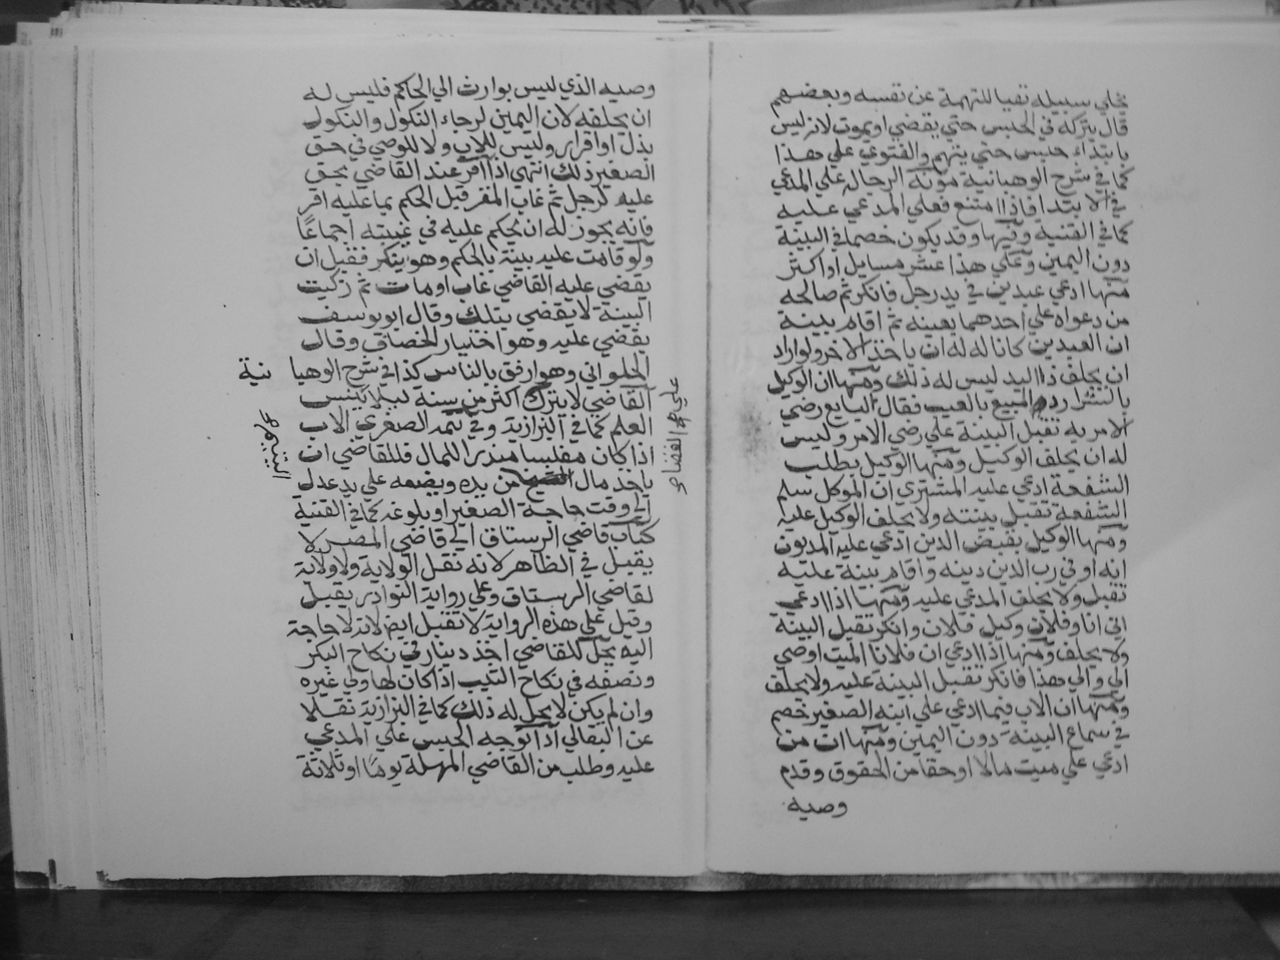 يخلي سبيله نفيا للتهمة عن نفسه وبعضهم
قال يتركه في الحبس حتي يقضي او يموت لانه ليس
بابتداء حبس حتي يتهم والفتوي علي هذا
كما في شرح الوهبانية مؤنة الرجالة علي المدعي
في الابتدا فاذا امتنع فعلي المدعي عليه
كما في القنية وفيها وقد يكون خصما في البينة
دون اليمين وعلي هذا عشر مسايل او اكثر
منها ادعي عبدين في يد رجل فانكر ثم صالحه
من دعواه علي احدهما بعينه ثم اقام بينة
ان العبدين كانا له له ان ياخذ الاخر ولو اراد
ان يحلف ذا اليد ليس له ذلك ومنها ان الوكيل
بالشرا رده المبيع بالعيب فقال البايع رضي
الامر به تقبل البينة علي رضي الامر وليس
له ان يحلف الوكيل ومنها الوكيل بطلب
الشفعة ادعي عليه المشتري ان الموكل سلم
الشفعة تقبل بينته ولا يحلف الوكيل عليه
ومنها الوكيل بقبض الدين ادعي عليه المديون
انه اوفي رب الدين دينه واقام بينة عليه
تقبل ولا يحلف المدعي عليه ومنها اذا ادعي
اني انا وفلان وكيل فلان وانكر تقبل البينة
ولا يحلف ومنها اذا ادعي ان فلانا الميت اوصي
الي والي هذا فانكر تقبل البينة عليه ولا يحلف
ومنها ان الاب فيما ادعي علي ابنه الصغير خصم
في سماع البينة دون اليمين ومنها ان من
ادعي علي ميت مالا او حقا من الحقوق وقدم
وصيه
وصيه الذي ليس بوارث الي الحاكم فليس له
ان يحلفه لان اليمين لرجاء النكول والنكول
بذل او اقرار وليس للاب ولا للوصي في حق
الصغير ذلك انتهي اذا اقر عند القاضي بحق
عليه لرجل ثم غاب المقر قبل الحكم بما عليه اقر
فانه يجوز له ان يحكم عليه في غيبته اجماعا
ولو قامت عليه بينة بالحكم وهو ينكر فقبل ان
يقضي عليه القاضي غاب او مات ثم زكيت
البينة لا يقضي بتلك وقال ابو يوسف
يقضي عليه وهو اختيار الخصاف وقال
الحلواني وهو ارفق بالناس كذا في شرح الوهبا نية
القاضي لا يترك اكثر من سنة ليلا ينسي
العلم كما في البزازية وفي عمد الصغري الاب
اذا كان مفلسا مبذرا للمال فللقاضي ان
ياخذ مال من يده ويضعه علي يد عدل
الي وقت حاجة الصغير او بلوغه كما في القنية
كتاب قاضي الرستاق الي قاضي المصر لا
يقبل في الظاهر لانه نقل الولاية ولا ولاية
لقاضي الرستاق وعلي رواية النوادر يقبل
وقيل علي هذه الرواية لا تقبل ايضا لانه لا حاجة
اليه يحل للقاضي اخذ دينار في نكاح البكر
ونصفه في نكاح الثيب اذا كان لها ولي غيره
وان لم يكن لا يحل له ذلك كما في البزازية نقلا
عن البقالي اذا توجه الحبس علي المدعي
عليه وطلب من القاضي المهلة يوما او ثلاثة